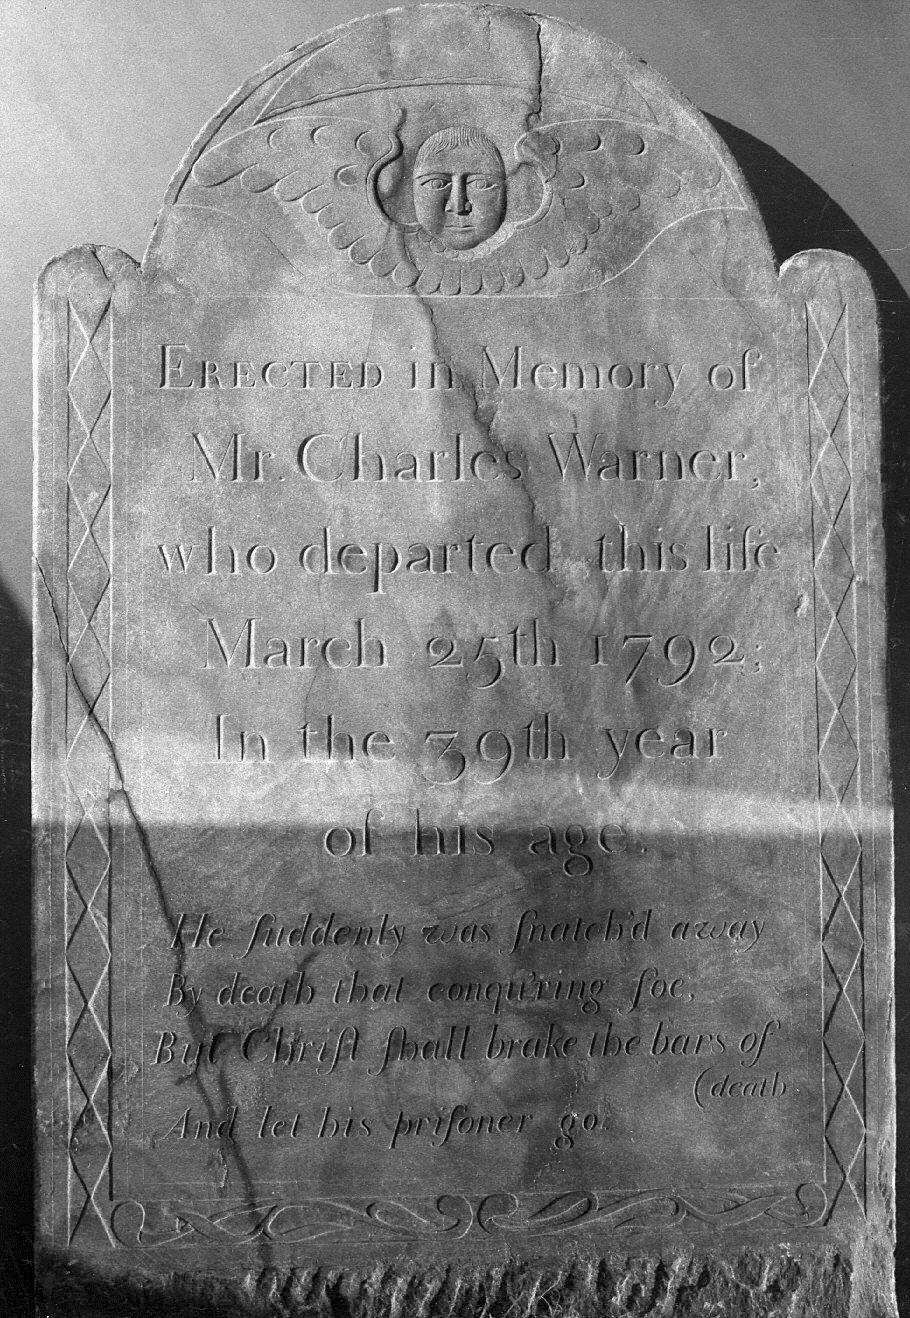 ERECTED in Memory of
Mr. Charles Warner,
who departed this life
March 25th 1792;
In the 39th year
of his age.
He ſuddenly was ſnatch'd away
By death that conqu'ring foe,
But Chriſt ſhall brake the bars of
(death
And let his priſoner go.